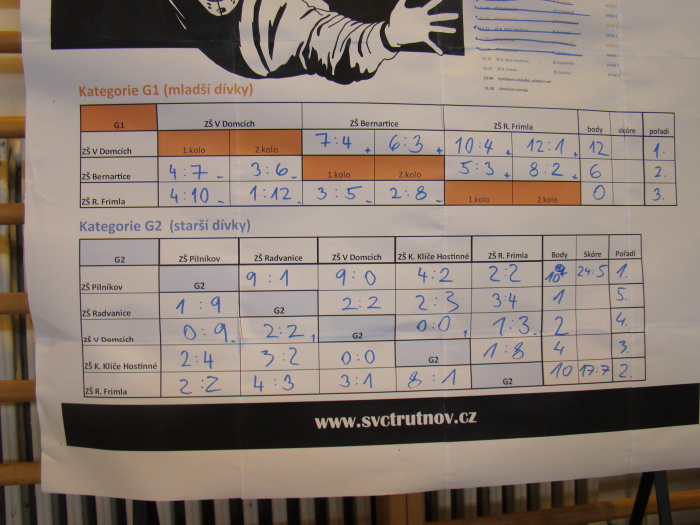 Kategorie G1 (mladší dívky)
G1 ZŠ V Domcích ZŠ Bernartice ZŠ R. Frimla body skóre pořadí
ZŠ V Domcích 1.kolo 2.kolo 7:4 + 6:3 + 10:4 + 12:1 + 12 1.
ZŠ Bernartice 4:7 - 3:6 - 1.kolo 2.kolo 5:3 + 8:2 + 6 2.
ZŠ R. Frimla 4:10 - 1:12 - 3:5 - 2:8 - 1.kolo 2.kolo 0 3.
Kategorie G2 (starší dívky)
G2 ZŠ Pilníkov ZŠ Radvanice ZŠ V Domcích ZŠ K. Klíče Hostinné ZŠ R. Frimla Body Skóre Pořadí
ZŠ Pilníkov G2 9:1 9:0 4:2 2:2 10 24:5 1.
ZŠ Radvanice 1:9 G2 2:2 2:3 3:4 1 5.
ZŠ V Domcích 0:9 - 2:2 G2 0:0 1:3 2 4.
ZŠ K. Klíče Hostinné 2:4 3:2 0:0 G2 1:8 4 3.
ZŠ R. Frimla 2:2 4:3 3:1 8:1 G2 10 17:7 2.
www.svctrutnov.cz